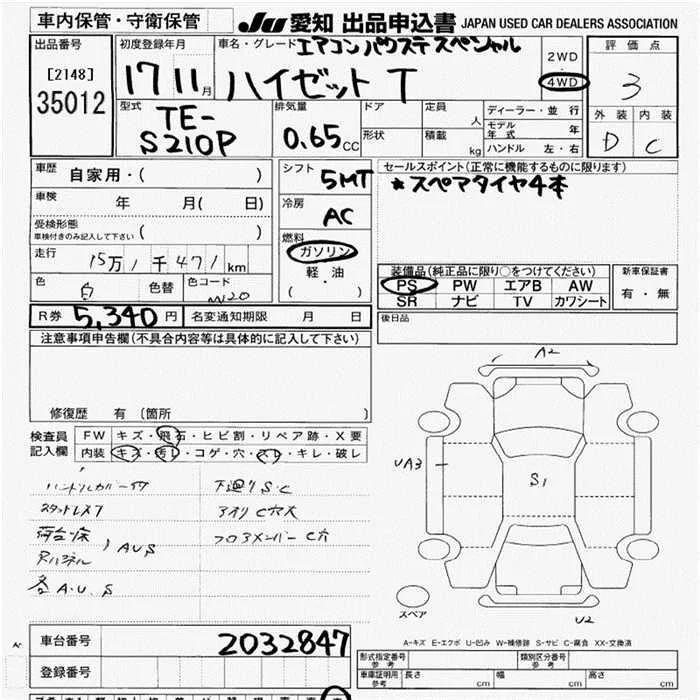 車内保管・守衛保管
JU 愛知 出品申込書 JAPAN USED CAR DEALERS ASSOCIATION
出品番号
[2148]
35012
初度登録年月
17 11月
車名・グレード エアコン パワステ スペシャル
ハイゼット T
2WD
・
4WD
評価点
3
外装 内装
D C
型式
TE-
S210P
排気量
0.65CC
ドア
形状
定員 人
積載 kg
ディーラー・並行
モデル年式 年
ハンドル 左・右
車歴
自家用・( )
車検 年 月( 日)
受検形態
車検付きのみ記入して下さい ( )
走行 15万1千471km
色 白 色替 色コード W20
シフト 5MT
冷房 AC
燃料
ガソリン
軽・油
( ・ )
セールスポイント(正常に機能するものに限ります)
*スペアタイヤ4本
装備品(純正品に限り○をつけてください)
PS PW エアB AW
SR ナビ TV カワシート
新車保証書
有・無
後日品
R券 5,340円 名変通知期限 月 日
注意事項申告欄(不具合内容等は具体的に記入して下さい)
修復歴 有 (箇所 )
検査員
記入欄
FW キズ・飛石・ヒビ割・リペア跡・X要
内装 キズ・汚レ・コゲ・穴・スレ・キレ・破レ
スタットレス7
荷台床
A U S
各 A.U.S
下廻りS.C
アオリC穴大
フロアメンバーC穴
A2
UA3
S1
U2
スペア
A-キズ E-エクボ U-凹み W-補修跡 S-サビ C-腐食 XX-交換済
車台番号 2032847
登録番号
形式指定番号
参考
類別区分番号
参考
車庫証明用
参考
長さ cm 幅 cm 高さ cm